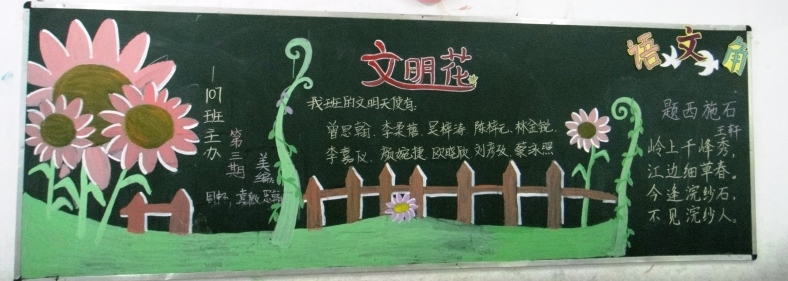 107班主办
第三期
美编
文明花
我班的文明天使有:
曾思翰、李柔蓓、吴梓涛、陈梓元、林金锐、
李嘉仪、颜婉捷、欧晓欣、刘彦及、蔡永熙
语文角
题西施石
王轩
岭上千峰秀,
江边细草春。
今逢浣纱石,
不见浣纱人。